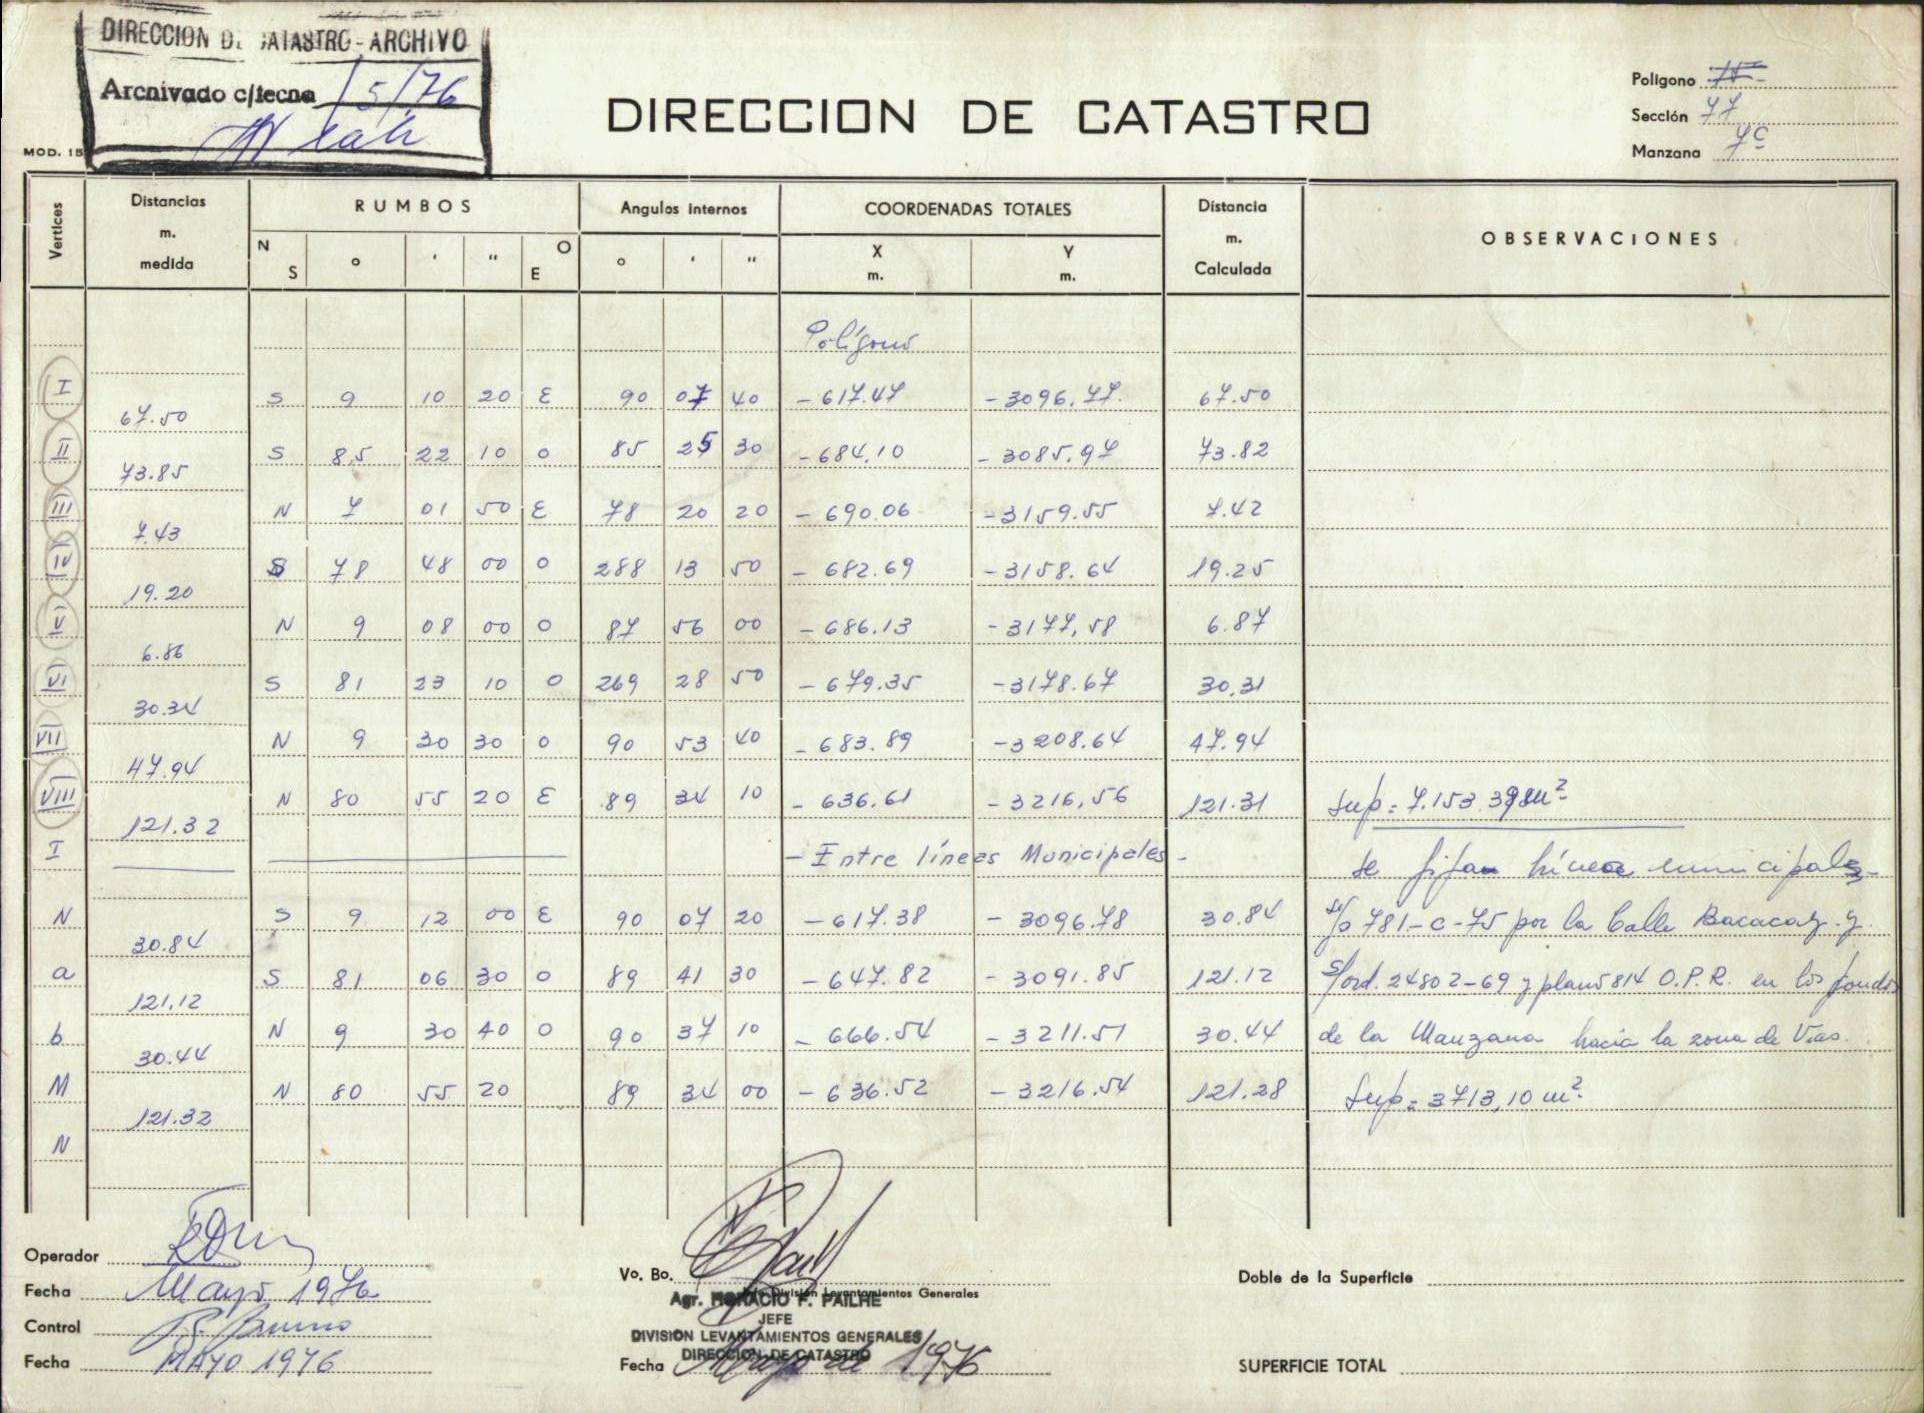 DIRECCION DE CATASTRO - ARCHIVO
Archivado c/fecha /5/76
MOD. 15
DIRECCION DE CATASTRO
Polígono
Sección 77
Manzana 7c
Vertices | Distancias m. medida | RUMBOS N S ° ' " O E | Angulos internos ° ' " | COORDENADAS TOTALES X m. Y m. | Distancia m. Calculada | OBSERVACIONES
Polígono
I S 9 10 20 E 90 07 40 -617.47 -3096.77 67.50
67.50
II S 85 22 10 O 85 25 30 -684.10 -3085.97 73.82
73.85
III N 7 01 50 E 78 20 20 -690.06 -3159.55 7.42
7.43
IV S 78 48 00 O 288 13 50 -682.69 -3158.64 19.25
19.20
V N 9 08 00 O 87 56 00 -686.13 -3177,58 6.87
6.86
VI S 81 23 10 O 269 28 50 -679.35 -3178.67 30,31
30.34
VII N 9 30 30 O 90 53 40 -683.89 -3208.64 47.94
47.94
VIII N 80 55 20 E 89 34 10 -636.61 -3216,56 121.31 Sup = 7.153.398m²
121.32
I - Entre líneas Municipales - Se fijan líneas municipales
N S 9 12 00 E 90 07 20 -617.38 -3096.78 30.84 s/p 781-C-75 por la Calle Bacacay y
30.84
a S 81 06 30 O 89 41 30 -647.82 -3091.85 121.12 s/ord. 24802-69 y plano 814 O.P.R. en los fondos
121.12
b N 9 30 40 O 90 37 10 -666.54 -3211.51 30.44 de la Manzana hacia la zona de Vias.
30.44
M N 80 55 20 89 34 00 -636.52 -3216.54 121.28 Sup = 3713,10 m²
121.32
N
Operador
Fecha Mayo 1976
Control
Fecha MAYO 1976
Vo. Bo.
División Levantamientos Generales
Agr. HORACIO F. PAILHE
JEFE
DIVISION LEVANTAMIENTOS GENERALES
DIRECCION DE CATASTRO
Fecha Mayo de 1976
Doble de la Superficie
SUPERFICIE TOTAL